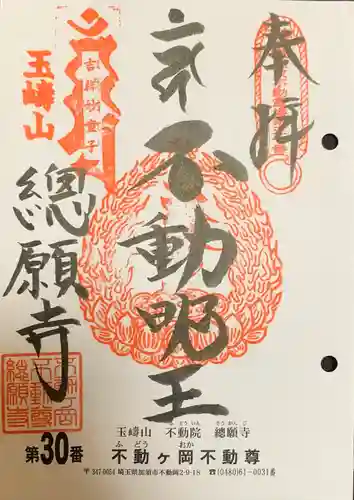 奉拝
不動明王
玉嶹山
總願寺
第30番
玉嶹山 不動院 總願寺
不動ヶ岡不動尊
〒347-0054 埼玉県加須市不動岡2-9-18 ☎(0480)61-0031番